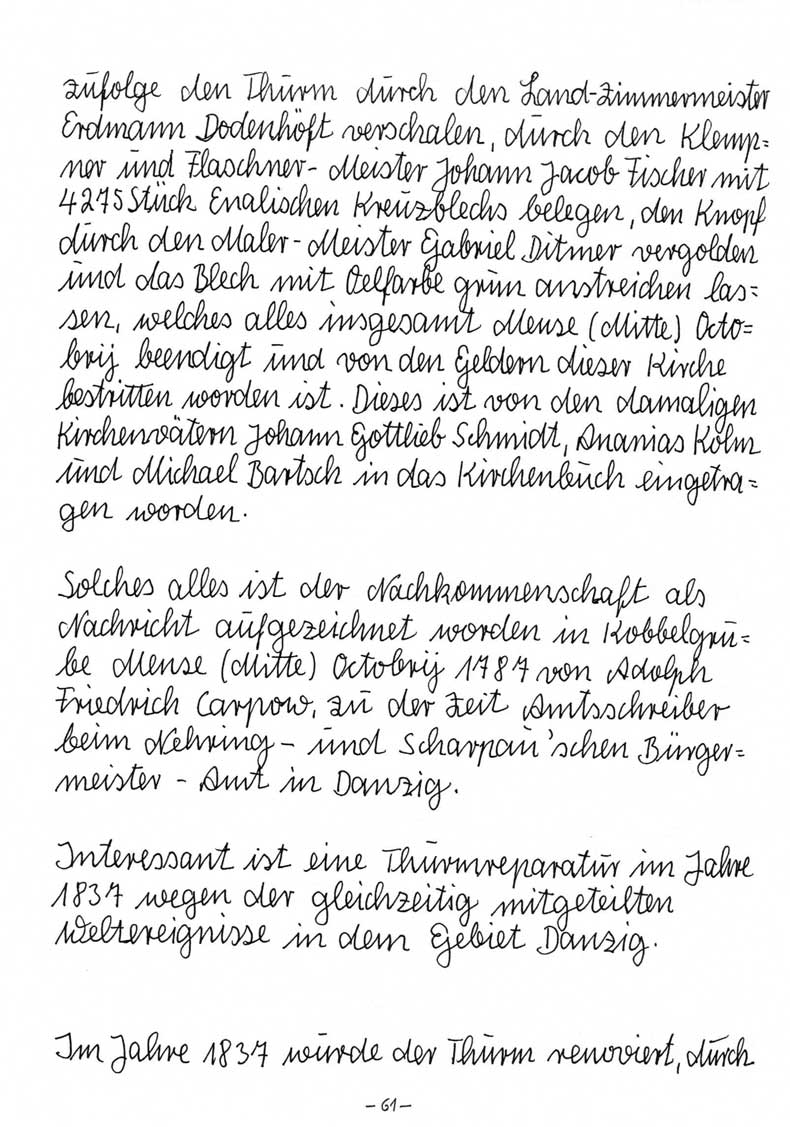 zufolge den Thurm durch den Land-Zimmermeister
Erdmann Dodenhöft verschalen, durch den Klemp=
ner und Flaschner-Meister Johann Jacob Fischer mit
4275 Stück Enalischen Kreuzblechs belegen, den Knopf
durch den Maler-Meister Gabriel Ditmer vergolden
und das Blech mit Oelfarbe grün anstreichen las=
sen, welches alles insgesamt Mense (Mitte) Octo=
brij beendigt und von den Geldern dieser Kirche
bestritten worden ist. Dieses ist von den damaligen
Kirchenvätern Johann Gottlieb Schmidt, Ananias Kolm
und Michael Bartsch in das Kirchenbuch eingetra=
gen worden.
Solches alles ist der Nachkommenschaft als
Nachricht aufgezeichnet worden in Kobbelgru=
be Mense (Mitte) Octobrij 1787 von Adolph
Friedrich Carpow, zu der Zeit Amtsschreiber
beim Nehring- und Scharpau'schen Bürger=
meister-Amt in Danzig.
Interessant ist eine Thurmreparatur im Jahre
1837 wegen der gleichzeitig mitgeteilten
Weltereignisse in dem Gebiet Danzig.
Im Jahre 1837 wurde der Thurm renoviert, durch
- 61 -